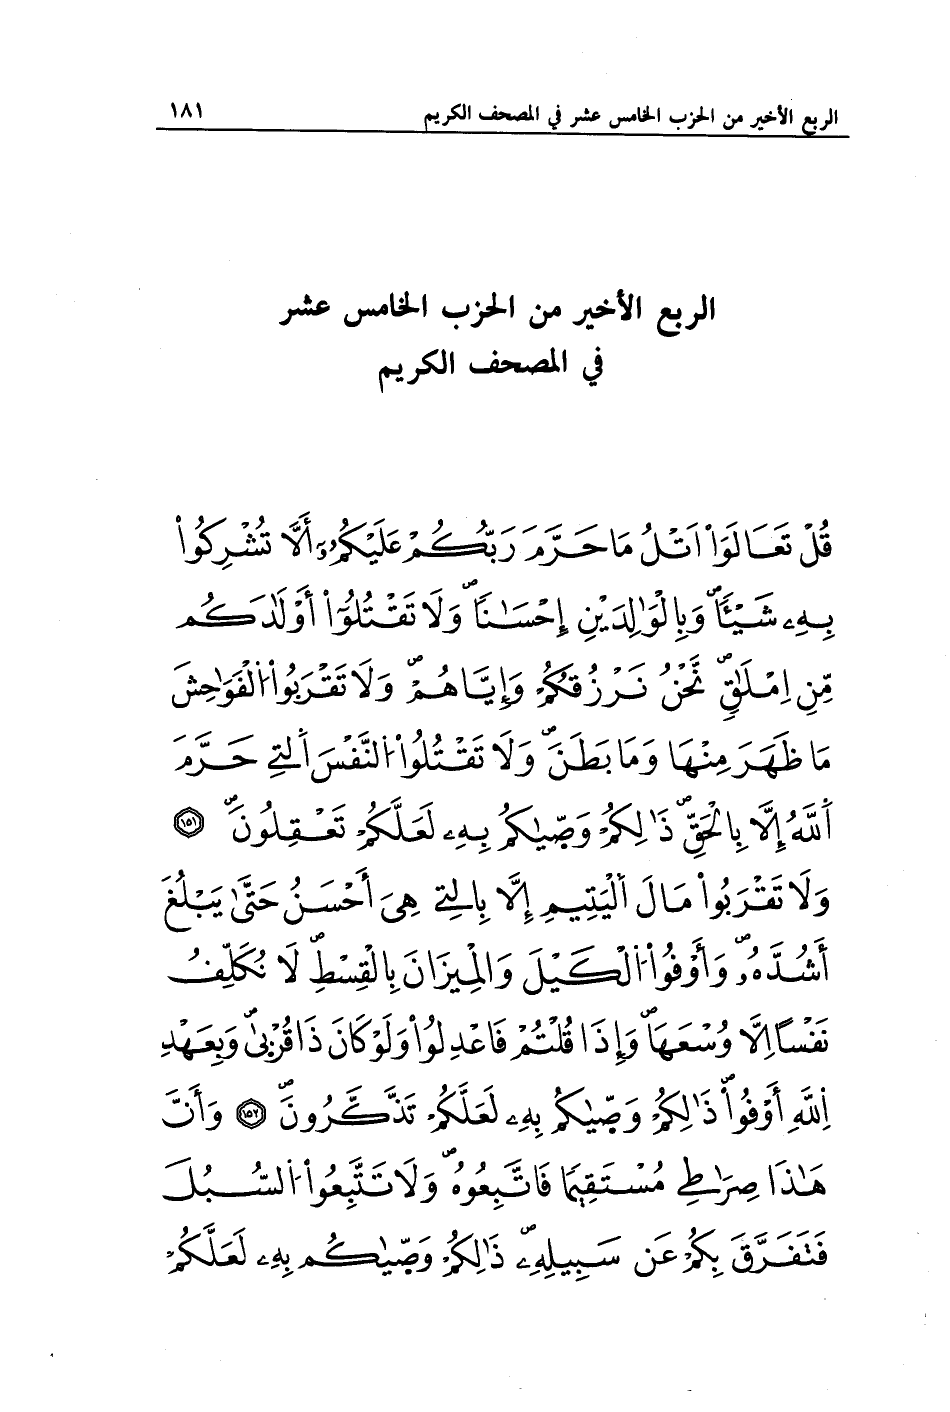 الربع الأخير من الحزب الخامس عشر في المصحف الكريم ١٨١
الربع الأخير من الحزب الخامس عشر
في المصحف الكريم
قُلْ تَعَالَوَاْ اَتْلُ مَا حَرَّمَ رَبُّكُمْ عَلَيْكُمُۥٓ أَلَّا تُشْرِكُواْ
بِهِۦ شَيْـًٔاۖ وَبِالْوَٰلِدَيْنِ إِحْسَٰناٗۖ وَلَا تَقْتُلُوٓاْ أَوْلَٰدَكُم
مِّنِ اِمْلَٰقٖۖ نَّحْنُ نَرْزُقُكُمْ وَإِيَّاهُمْۖ وَلَا تَقْرَبُواْ اُلْفَوَٰحِشَ
مَا ظَهَرَ مِنْهَا وَمَا بَطَنَۖ وَلَا تَقْتُلُواْ اُلنَّفْسَ اَلتِے حَرَّمَ
اَللَّهُ إِلَّا بِالْحَقِّۖ ذَٰلِكُمْ وَصّ۪يٰكُم بِهِۦ لَعَلَّكُمْ تَعْقِلُونَۖ ١٥١
وَلَا تَقْرَبُواْ مَالَ اَلْيَتِيمِ إِلَّا بِالتِے هِىَ أَحْسَنُ حَتَّىٰ يَبْلُغَ
أَشُدَّهُۥۖ وَأَوْفُواْ اُلْكَيْلَ وَالْمِيزَانَ بِالْقِسْطِۖ لَا نُكَلِّفُ
نَفْساً اِلَّا وُسْعَهَاۖ وَإِذَا قُلْتُمْ فَاعْدِلُواْ وَلَوْ كَانَ ذَا قُرْب۪يٰۖ وَبِعَهْدِ
اِللَّهِ أَوْفُواْۖ ذَٰلِكُمْ وَصّ۪يٰكُم بِهِۦ لَعَلَّكُمْ تَذَّكَّرُونَۖ ١٥٢ وَأَنَّ
هَٰذَا صِرَٰطِے مُسْتَقِيماٗ فَاتَّبِعُوهُۖ وَلَا تَتَّبِعُواْ اُلسُّبُلَ
فَتَفَرَّقَ بِكُمْ عَن سَبِيلِهِۦۖ ذَٰلِكُمْ وَصّ۪يٰكُم بِهِۦ لَعَلَّكُمْ